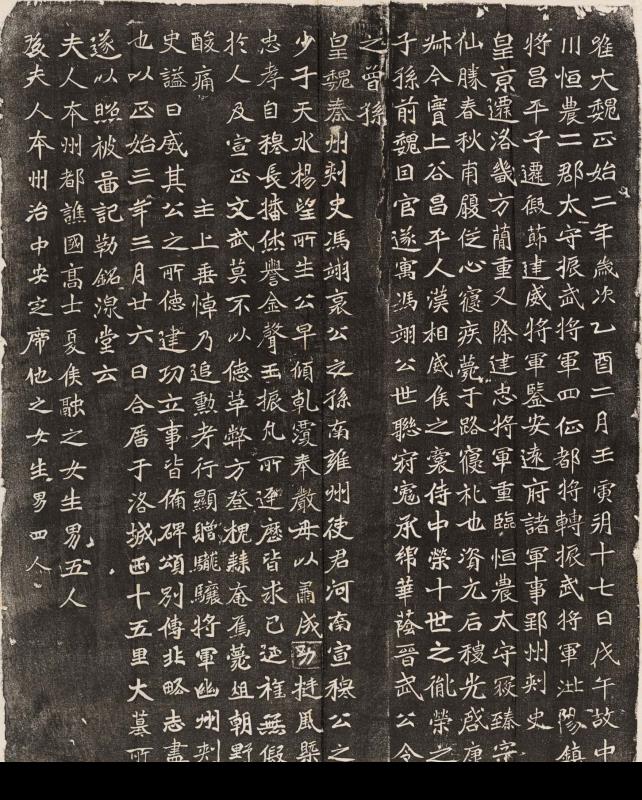 唯大魏正始二年歲次乙酉二月壬寅朔十七日戊午故中
川恒農二郡太守振武將軍四征都將轉振武將軍沘陽鎮
將昌平子遷假節建威將軍監安遠府諸軍事郢州刺史
皇京遷洛畿方簡重又除建忠將軍重臨恒農太守臻
仙勝春秋甫履從心寢疾薨于路寢礼也資元后稷光啓康
叔今實上谷昌平人漢相威侯之裔侍中榮十世之胤榮之
子孫前魏因官遂寓馮翊公世聯承綿華蔭晉武公令
之曾孫
皇魏秦州刺史馮翊哀公之孫南雍州使君河南宣穆公之
少子天水楊望所生公早傾乾覆奉嚴母以肅成挺風槩
忠孝自穆長播休譽金聲玉振凡所逕歷皆求己延祚無假
於人及宣正文武莫不以德革弊方登槐棘奄焉薨俎朝野
酸痛 主上垂悼乃追勲考行顯贈龍驤將軍幽州刺
史謚曰威其公之所德建功立事皆備碑頌別傳非略志盡
也以正始三年三月廿六日合厝于洛城西十五里大墓所
遂以照被啚記勒銘湶堂云
夫人本州都譙國高士夏侯融之女生男五人
後夫人本州治中安定席他之女生男四人